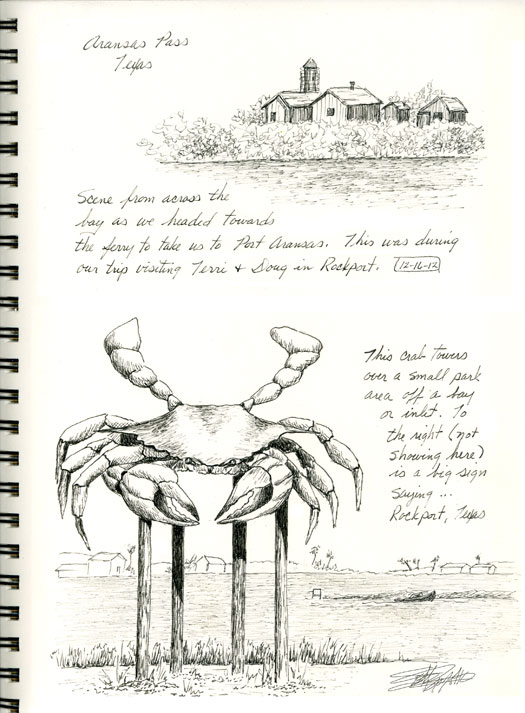 Aransas Pass
Texas
Scene from across the
bay as we headed towards
the ferry to take us to Port Aransas. This was during
our trip visiting Terri & Doug in Rockport. 12-16-12
This crab towers
over a small park
area off a bay
or inlet. To
the right (not
showing here)
is a big sign
saying ...
Rockport, Texas